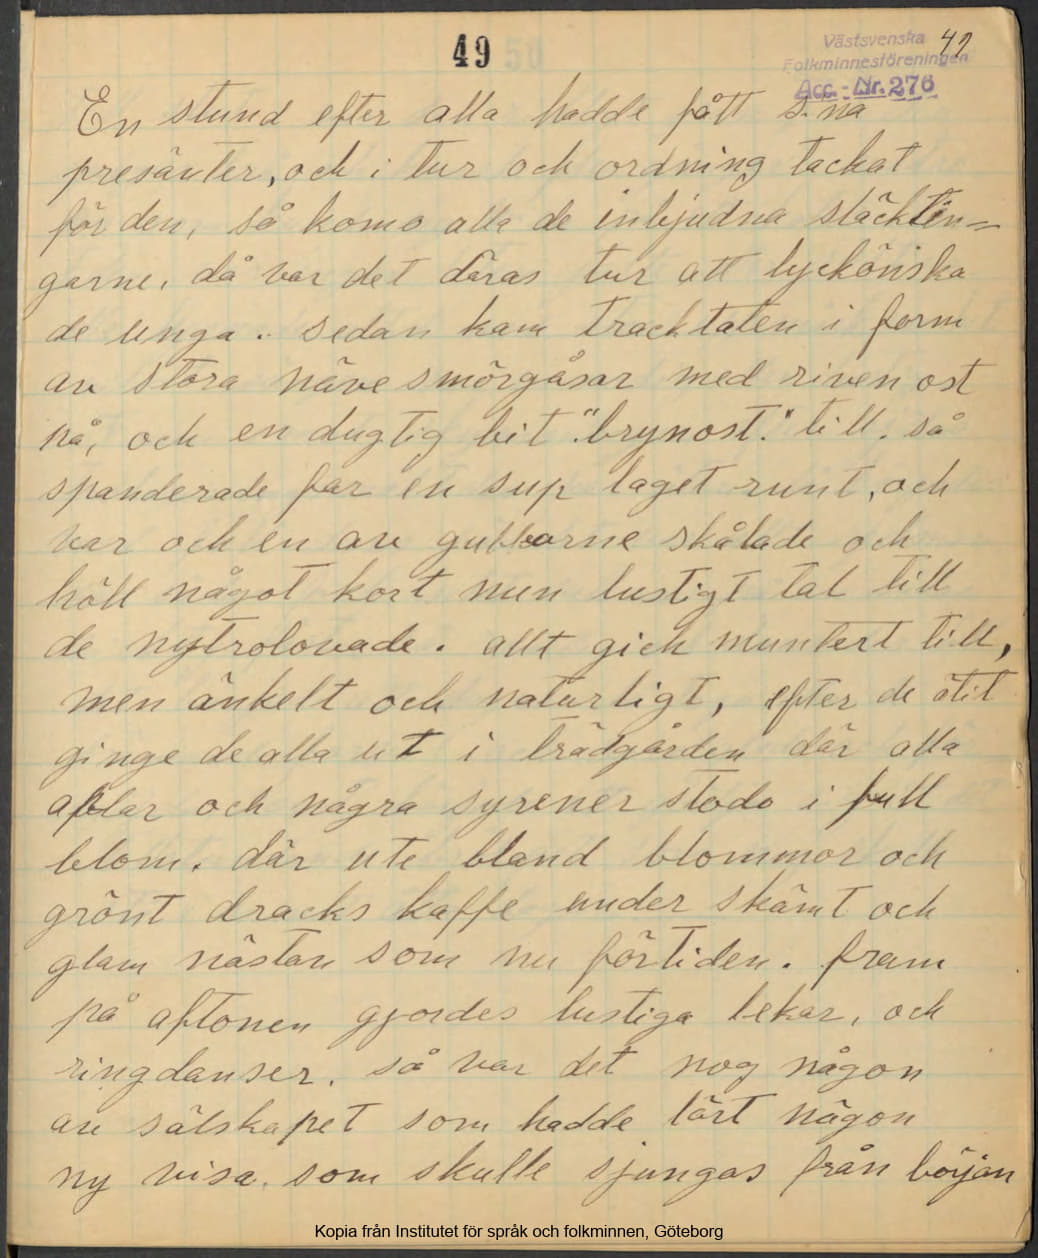 49
49
Västsvenska
Folkminnesföreningen
Acc.-Nr. 276
En stund efter alla hadde fått sina
presänter, och i tur och ordning tackat
för den, så komo alla de inbjudna släktin=
garne, då var det däras tur att lyckönska
de unga. sedan kam tracktaten i form
av stora näve smörgåsar med riven ost
på, och en dugtig bit "brynost." till. så
spanderade far en sup laget runt, och
var och en av gubbarne skålade och
höll något kort men lustigt tal till
de nytrolovade. allt gick muntert till,
men änkelt och naturligt, efter de ätit
ginge de alla ut i trädgården där alla
aplar och några syrener stodo i full
blom. där ute bland blommor och
grönt dracks kaffe under skämt och
glam nästan som nu förtiden. fram
på aftonen gjordes lustiga lekar, och
ringdanser. så var det nog någon
av sälskapet som hadde lärt någon
ny visa. som skulle sjungas från början
Kopia från Institutet för språk och folkminnen, Göteborg